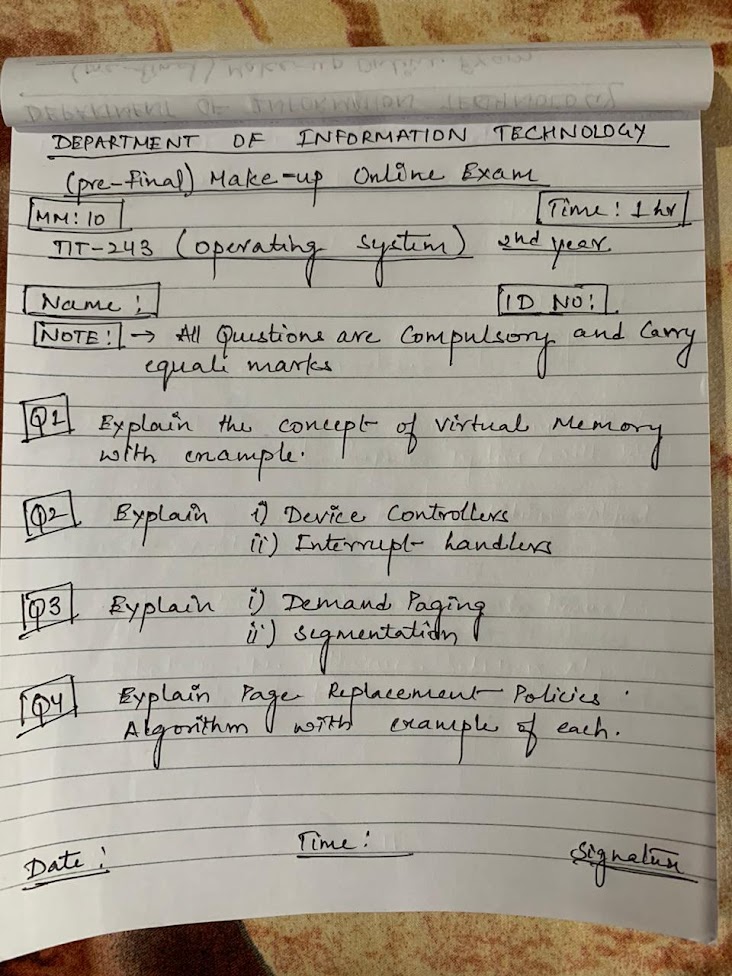 DEPARTMENT OF INFORMATION TECHNOLOGY
(pre-final) Make-up Online Exam
MM: 10 Time: 1 hr
TIT-243 (Operating System) 2nd year.
Name: ID NO:
NOTE: → All Questions are Compulsory and Carry
equal marks
Q1 Explain the concept of Virtual Memory
with example.
Q2 Explain i) Device Controllers
ii) Interrupt handlers
Q3 Explain i) Demand Paging
ii) Segmentation
Q4 Explain Page Replacement Policies
Algorithm with example of each.
Date: Time: Signature